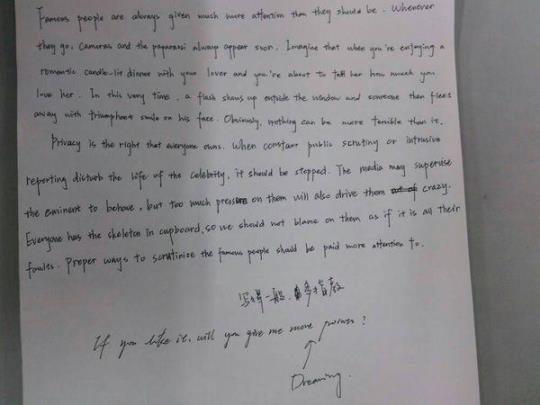 Famous people are always given much more attention than they should be. Whenever
they go, cameras and the paparassi always appear soon. Imagine that when you're enjoying a
romantic candle-lit dinner with your lover and you're about to tell her how much you
love her. In this very time, a flash shows up outside the window and someone then flees
away with triumphant smile on his face. Obviously, nothing can be more terrible than it.
Privacy is the right that everyone owns. When constant public scrutiny or intrusive
reporting disturb the life of the celebrity, it should be stopped. The media may supervise
the eminent to behave, but too much pressure on them will also drive them crazy.
Everyone has the skeleton in cupboard, so we should not blame on them as if it is all their
foules. Proper ways to scrutinize the famous people should be paid more attention to.
写得一般，多多指教
If you like it, will you give me more praises?
Dreaming.